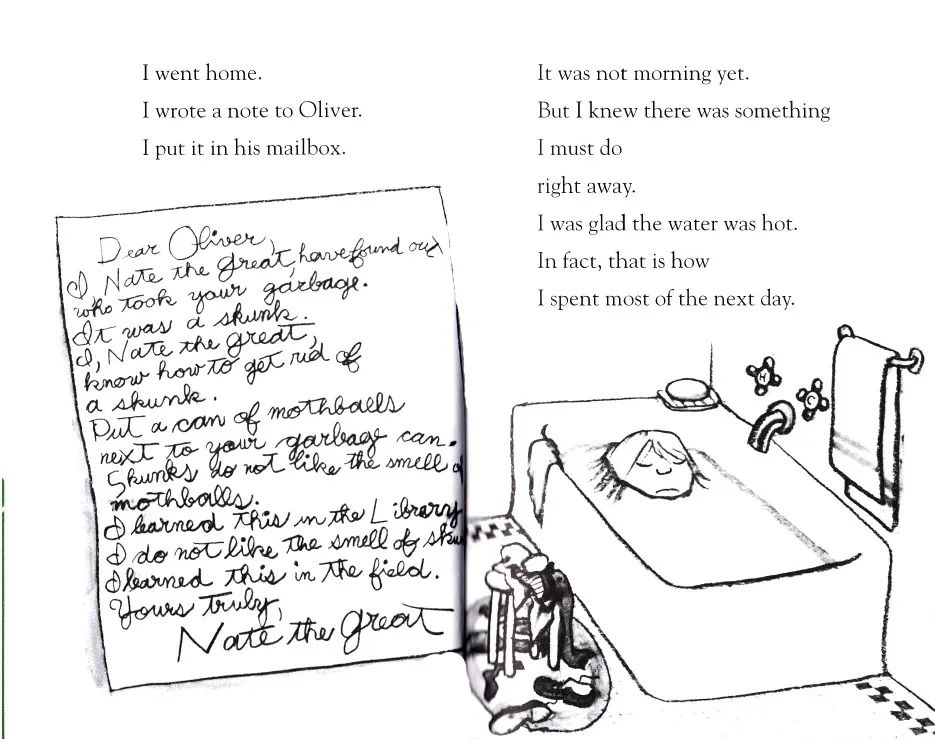 I went home.
I wrote a note to Oliver.
I put it in his mailbox.
Dear Oliver,
I, Nate the great, have found out
who took your garbage.
It was a skunk.
I, Nate the great,
know how to get rid of
a skunk.
Put a can of mothballs
next to your garbage can.
Skunks do not like the smell o
mothballs.
I learned this in the Library
I do not like the smell of sku
I learned this in the field.
Yours truly,
Nate the great
It was not morning yet.
But I knew there was something
I must do
right away.
I was glad the water was hot.
In fact, that is how
I spent most of the next day.
H
C